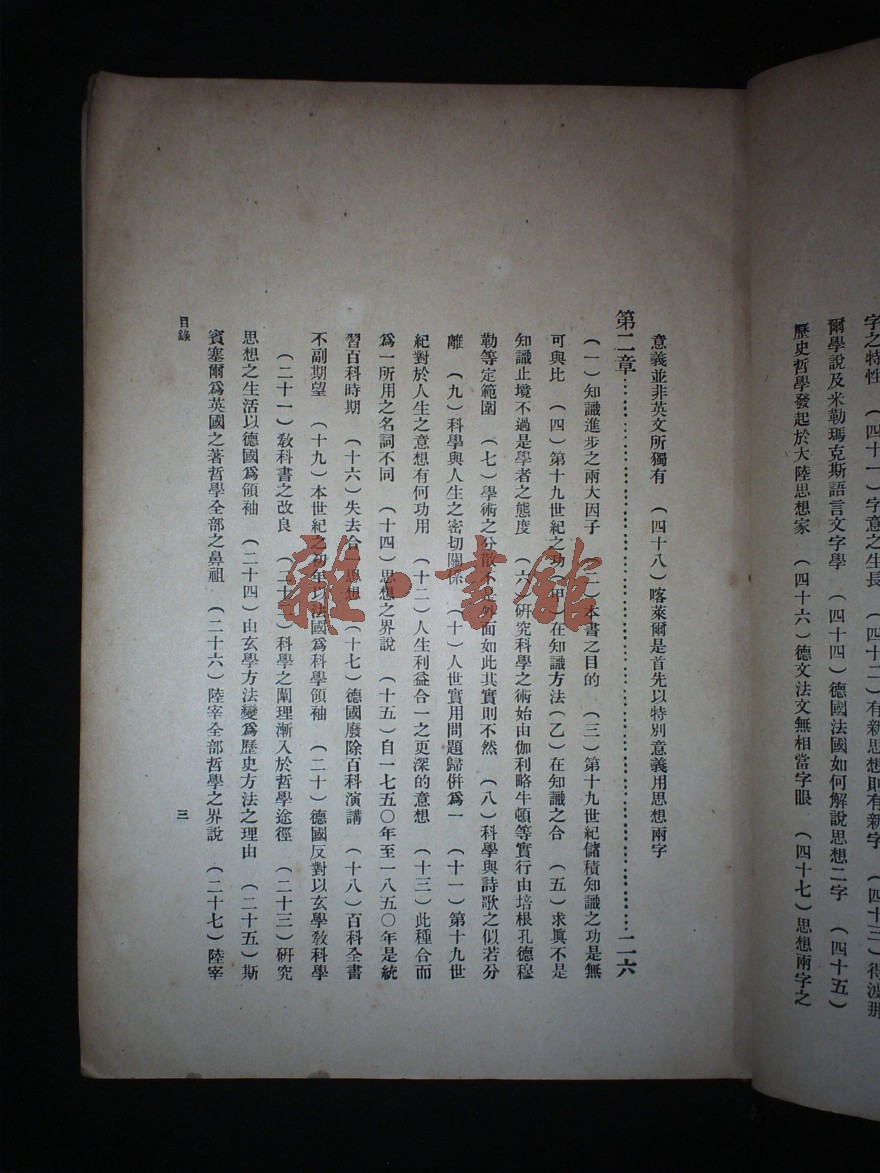 字之特性 (四十一)字意之生長 (四十二)有新思想則有新字 (四十三)得波那
爾學說及米勒瑪克斯語言文字學 (四十四)德國法國如何解說思想二字 (四十五)
歷史哲學發起於大陸思想家 (四十六)德文法文無相當字眼 (四十七)思想兩字之
意義並非英文所獨有 (四十八)喀萊爾是首先以特別意義用思想兩字
第二章……………………………………………………二一六
(一)知識進步之兩大因子 (二)本書之目的 (三)第十九世紀儲積知識之功是無
可與比 (四)第十九世紀之功(甲)在知識方法(乙)在知識之合 (五)求眞不是
知識止境不過是學者之態度 (六)研究科學之術始由伽利略牛頓等實行由培根孔德穆
勒等定範圍 (七)學術之分散不是外面如此其實則不然 (八)科學與詩歌之似若分
離 (九)科學與人生之密切關係 (十)人世實用問題歸倂爲一 (十一)第十九世
紀對於人生之意想有何功用 (十二)人生利益合一之更深的意想 (十三)此種合而
爲一所用之名詞不同 (十四)思想之界說 (十五)自一七五〇年至一八五〇年是統
習百科時期 (十六)失去合一思想 (十七)德國廢除百科演講 (十八)百科全書
不副期望 (十九)本世紀之初年以法國爲科學領袖 (二十)德國反對以玄學敎科學
(二十一)敎科書之改良 (二十二)科學之闡理漸入於哲學途徑 (二十三)研究
思想之生活以德國爲領袖 (二十四)由玄學方法變爲歷史方法之理由 (二十五)斯
賓塞爾爲英國之著哲學全部之鼻祖 (二十六)陸宰全部哲學之界說 (二十七)陸宰
目錄
三
雜·書館